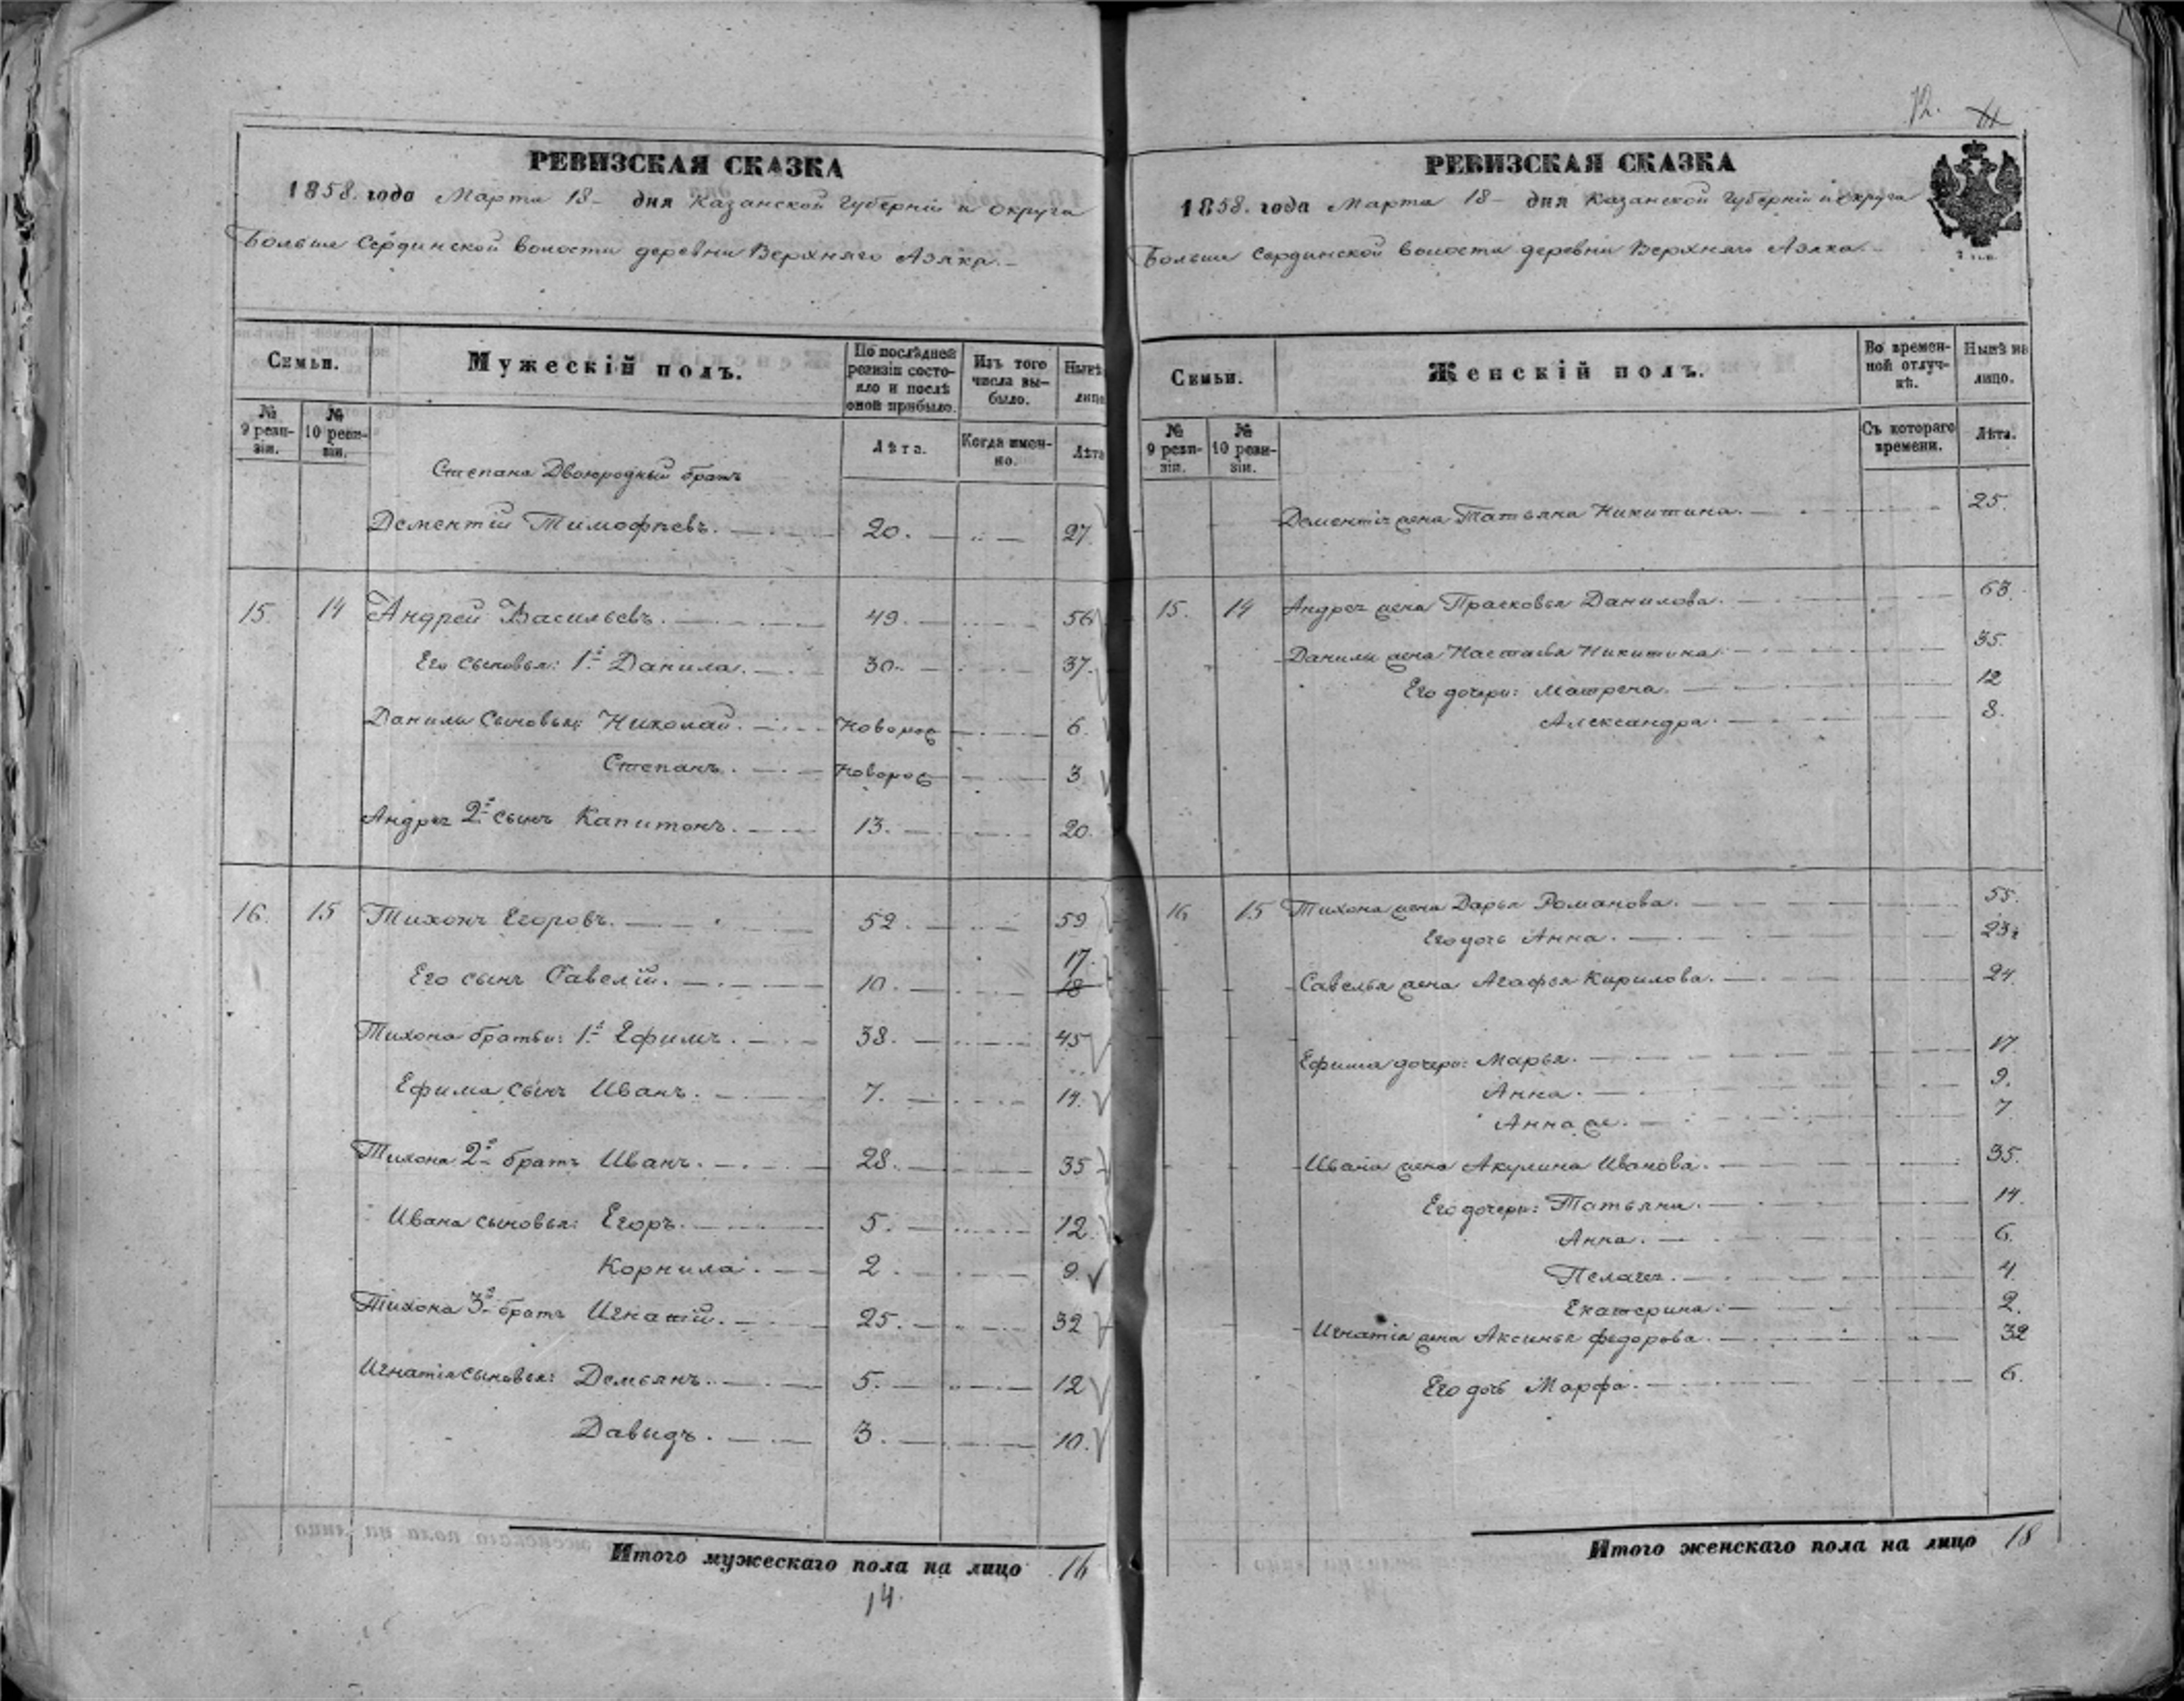 РЕВИЗСКАЯ СКАЗКА
1858. года Марта 18 - дня Казанской Губерніи и округа
Больше Сердинской волости деревни Верхняго Азяка. -
Семьи.
Мужескій полъ.
По послѣдней ревизіи состояло и послѣ оной прибыло.
Изъ того числа выбыло.
Нынѣ
лицо
№ 9 ревизіи.
№ 10 ревизіи.
Лѣта.
Когда именно.
Лѣта
Степана Двоюродный братъ
Дементій Тимофѣевъ. 20. 27.
15. 14 Андрей Васильевъ. 49. 56
Его сыновья: 1й Данила. 30. 37.
Данилы Сыновья: Николай. Новорож 6.
Степанъ. Новорож 3
Андрея 2й сынъ Капитонъ. 13. 20.
16. 15 Тихонъ Егоровъ. 52. 59
17.
Его сынъ Савелій. 10. 18
Тихона братья: 1й Ефимъ. 38. 45
Ефима сынъ Иванъ. 7. 14.
Тихона 2й братъ Иванъ. 28. 35
Ивана сыновья: Егоръ. 5. 12.
Корнила. 2. 9.
Тихона 3й братъ Игнатій. 25. 32
Игнатія сыновья: Демьянъ. 5. 12
Давыдъ. 3. 10.
Итого мужескаго пола на лицо 16
14.
12.
РЕВИЗСКАЯ СКАЗКА
1858. года Марта 18 - дня Казанской Губерніи и округа
Больше Сердинской волости деревни Верхняго Азяка. -
Семьи.
Женскій полъ.
Во временной отлучкѣ.
Нынѣ на лицо.
№ 9 ревизіи.
№ 10 ревизіи.
Съ котораго времени.
Лѣта.
Дементія жена Татьяна Никитина. 25.
15. 14 Андрея жена Прасковья Данилова. 63.
Данилы жена Настасья Никитина. 35.
Его дочери: Матрена. 12
Александра. 8.
16 15 Тихона жена Дарья Романова. 55.
Его дочь Анна. 23.
Савелья жена Агафья Кирилова. 24.
Ефима дочери: Марья. 17.
Анна. 9.
Анна же. 7
Ивана жена Акулина Иванова. 35.
Его дочери: Татьяна. 14.
Анна. 6.
Пелагея. 4.
Екатерина. 2.
Игнатія жена Аксинья Федорова. 32
Его дочь Марфа. 6.
Итого женскаго пола на лицо 18